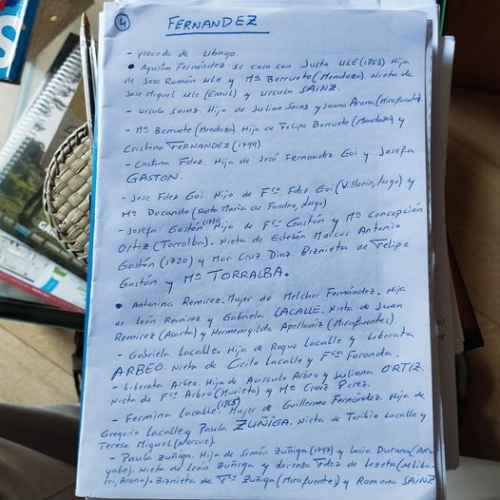 4
FERNANDEZ
- procede de Ubago
• Agustin Fernández se casa con Justa ULE (1868) Hija
de Jose Ramón Ule y Mª Berruete (Mendoza) Nieta de
Jose Miguel Ule (Emul) y Ursula SAINZ.
- Ursula Sainz. Hija de Julian Sainz y Juana Arana (Mirafuentes).
- Mª Berruete (Mendoza) Hija de Felipe Berruete (Mendoza) y
Cristina FERNANDEZ (1799).
- Cristina Fdez. Hija de José Fernandez Goi y Josefa
GASTON.
- Jose Fdez Goi. Hijo de Fco Fdez Goi (Villamayor) y
Mª Docando (Santa María de)
- Josefa Gastón. Hija de Fco Gastón y Mª Concepción
Ortiz (Torralba). Nieta de Esteban Marcos Antonio
Gastón (1720) y Mari Cruz Diaz Biznieta de Felipe
Gastón y Mª TORRALBA.
• Antonina Remirez. Mujer de Melchor Fernández. Hija
de León Remirez y Gabriela LACALLE. Nieta de Juan
Remirez (Asarta) y Hermenegilda Apellaniz (Mirafuentes).
- Gabriela Lacalle. Hija de Roque Lacalle y Liberata
ARBEO. Nieta de Cirilo Lacalle y Fca Foronda.
- Liberata Arbeo. Hija de Arbeo y Juliana ORTIZ.
Nieta de Fco Arbeo (Murieta) y Mª Cruz Perez.
- Fermina Lacalle (1865) Mujer de Guillermo Fernández. Hija de
Gregorio Lacalle y Paula ZUÑIGA. Nieta de Toribio Lacalle y
Teresa Miguel (Narcue).
- Paula Zuñiga. Hija de Simón Zuñiga (1797) y Lucia Durana (Ara
yabe). Nieta de León Zuñiga y Lorenza Fdez de
Arana). Biznieta de Zuñiga (Mirafuentes) y Ramona SAINZ